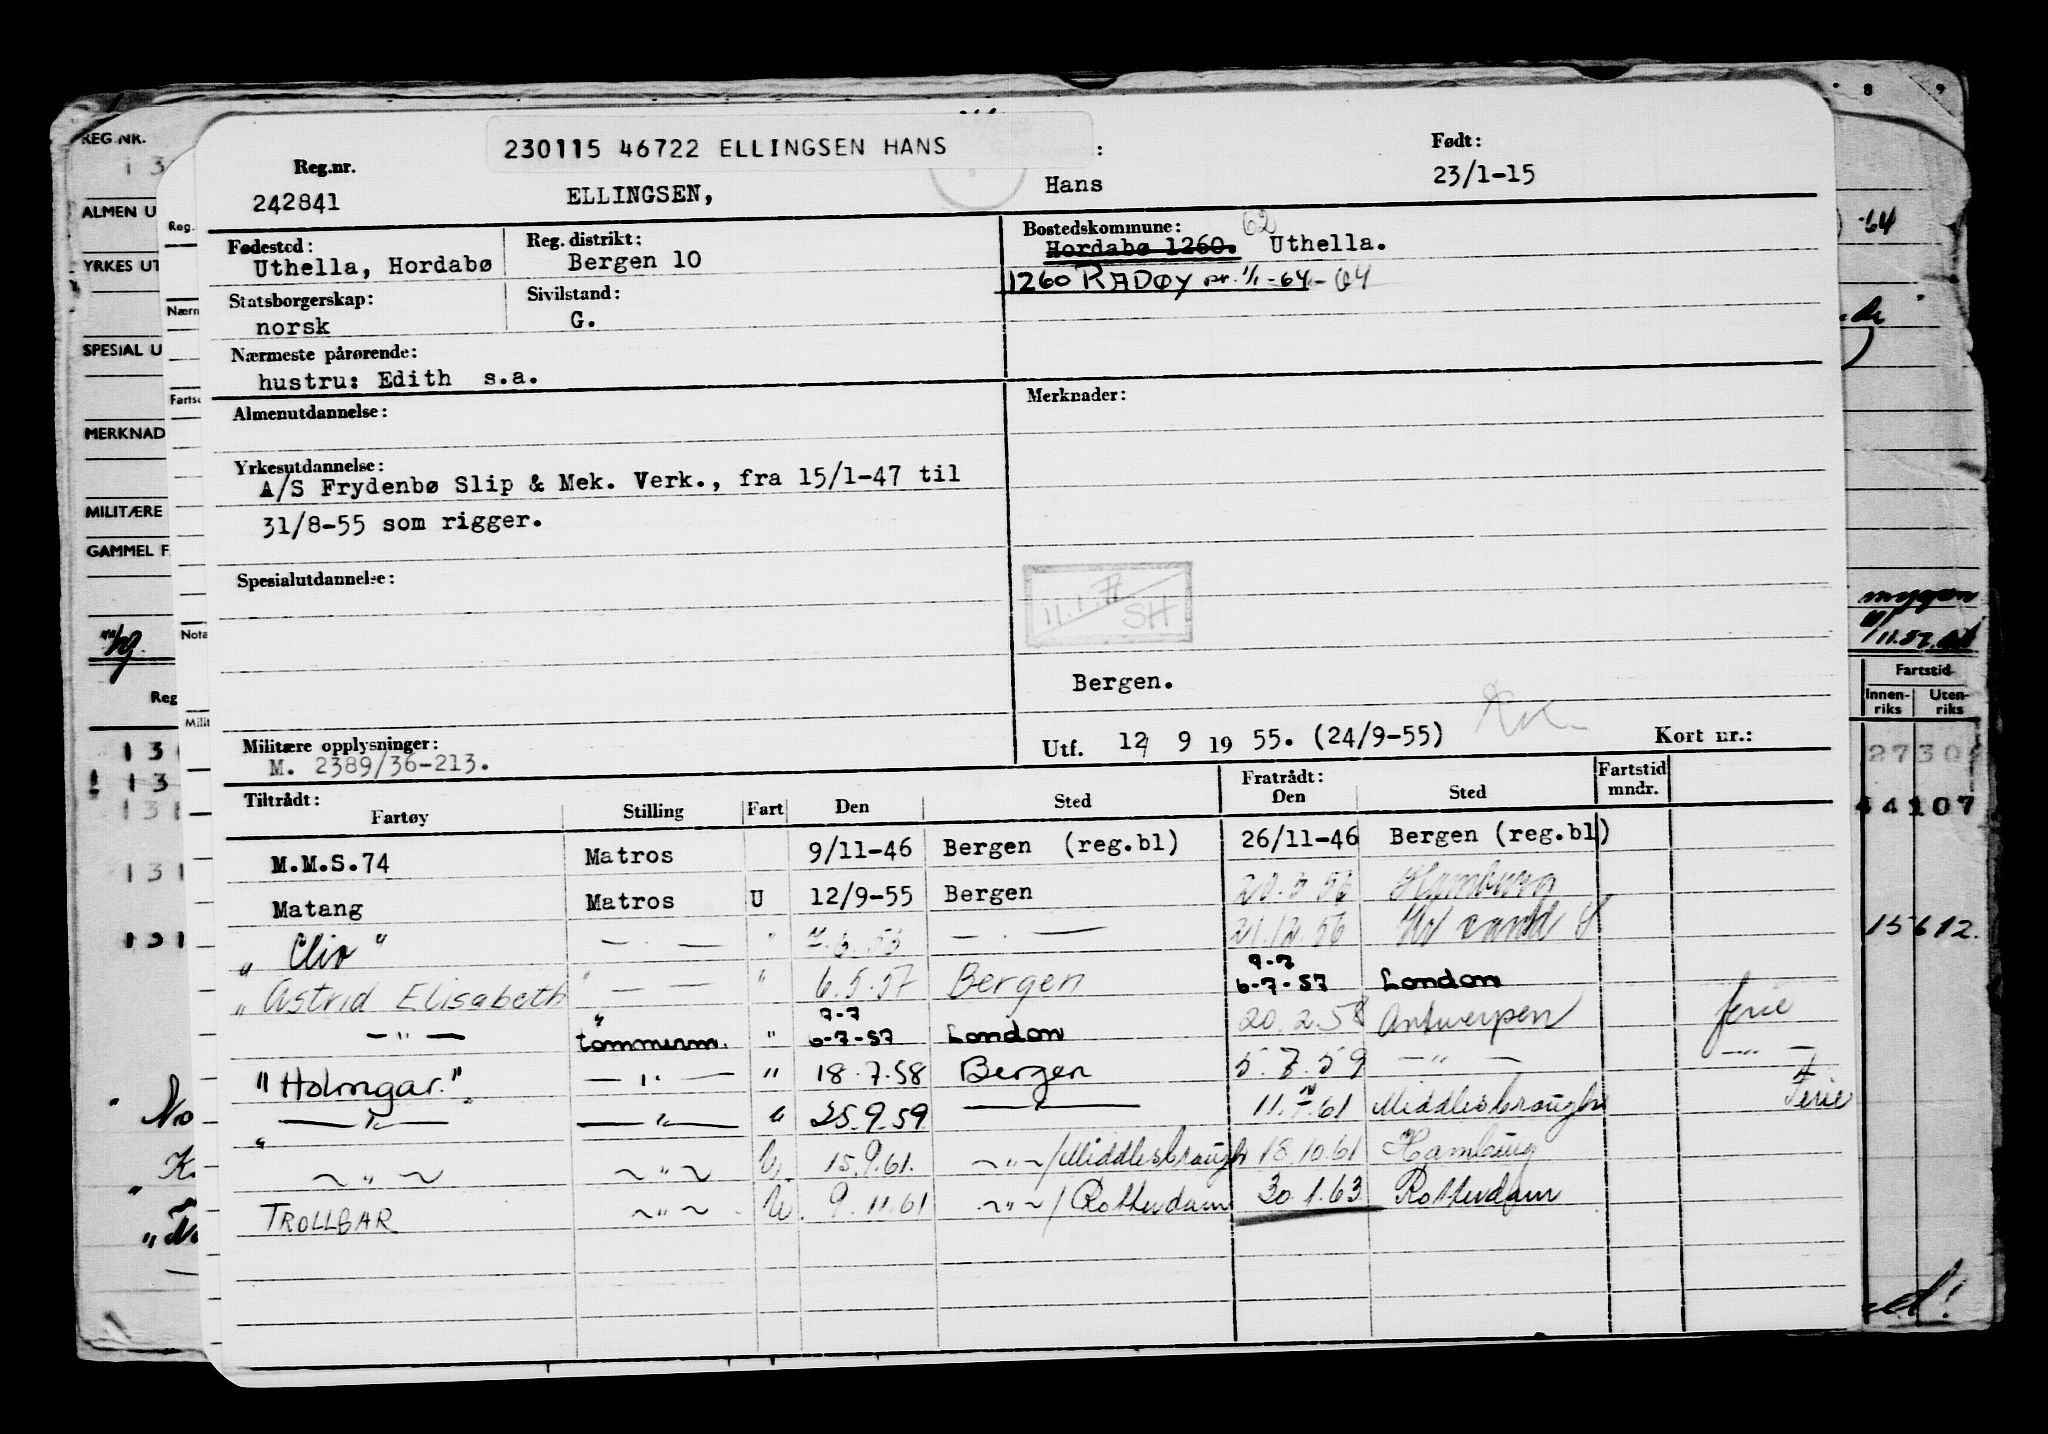 230115 46722 ELLINGSEN HANS
Reg.nr. : Født:
242841 ELLINGSEN, Hans 23/1-15
Fødested: Reg. distrikt: Bostedskommune: 62
Uthella, Hordabø Bergen 10 Hordabø 1260. Uthella.
Statsborgerskap: Sivilstand: 1260 RADØY pr. 1/1-64-64
norsk G.
Nærmeste pårørende:
hustru: Edith s.a.
Almenutdannelse: Merknader:
Yrkesutdannelse:
A/S Frydenbø Slip & Mek. Verk., fra 15/1-47 til
31/8-55 som rigger.
Spesialutdannelse:
11.1.71
SH
Bergen.
Militære opplysninger: Utf. 12 9 19 55. (24/9-55) Kort nr.:
M. 2389/36-213.
Tiltrådt: Fratrådt: Fartstid
Fartøy Stilling Fart Den Sted Den Sted mndr.
M.M.S.74 Matros 9/11-46 Bergen (reg.bl) 26/11-46 Bergen (reg.bl)
Matang Matros U 12/9-55 Bergen Hamburg
"Clio" — . — " — . — 21.12.56
"Astrid Elisabeth " — — " 6.5.57 Bergen 6-7-57 London
7-7 9-7
— " — tømmerm. " 6-7-57 London 20.2.58 Antwerpen ferie
"Holmgar" — " — " 18.7.58 Bergen 5.7.59 — " — — " —
— " — — " — " 25.9.59 — 11. .61 Middlesbrough Ferie
~ " ~ ~ " ~ U 15.9.61. ~ " ~ / Middlesbrough 18.10.61 Hamburg
TROLLGAR ~ " ~ U. 9.11.61 ~ " ~ / Rotterdam 30.1.63 Rotterdam
REG.NR.
ALMEN U
YRKES UT
SPESIAL U
MERKNAD
MILITÆRE
GAMMEL F
Reg
Reg.
Nærm
Fartsc
Nota
Milit
8 9
-64
11.57
Fartstid
Innen-riks Uten-riks
27 30
44 107
15 612.